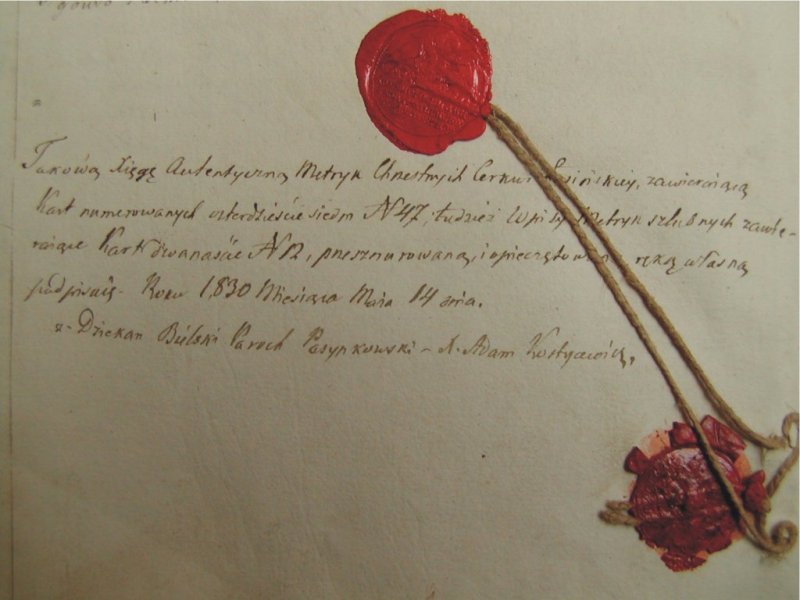 Takową Xięgę Autentyczną Metryk Chrestnych Cerkwi, zawieraiącą
Kart numerowanych czterdzieście siedm N 47, tudzież Wpisy Metryk szlubnych zawie-
raiące Kart dwanaście N 12, presznurowaną, i opieczętowaną ręką własną
podpisuię. Roku 1,830 Miesiąca Maia 14 dnia.
x. Dziekan Bielski Paroch Pasynkowski - X. Adam Kostycewicz,